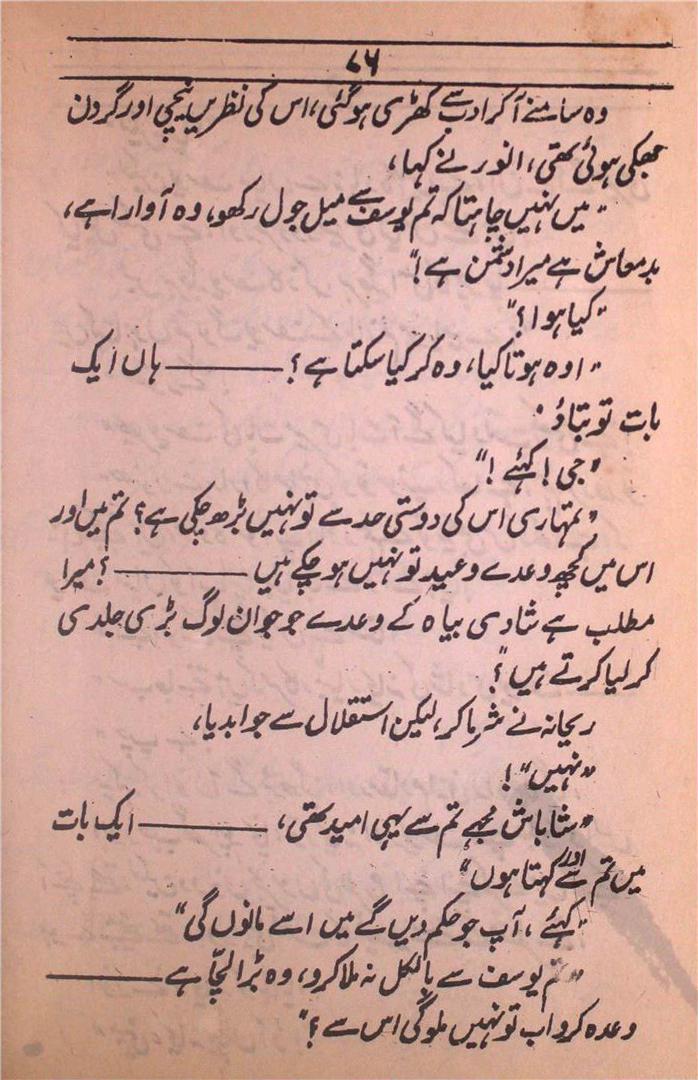 ۷۶
وہ سامنے آکر ادب سے کھڑی ہوگئی، اس کی نظریں نیچی اور گردن
جھکی ہوئی تھی، انور نے کہا،
"میں نہیں چاہتا کہ تم یوسف سے میل جول رکھو، وہ آوارا ہے،
بدمعاش ہے میرا دشمن ہے!"
"کیا ہوا؟"
"اوہ ہوتا کیا، وہ کر کیا سکتا ہے؟ ——— ہاں ایک
بات تو بتاؤ۔
"جی! کہئے!"
"تمہاری اس کی دوستی حد سے تو نہیں بڑھ چکی ہے؟ تم میں اور
اس میں کچھ وعدے وعید تو نہیں ہو چکے ہیں ———؟ میرا
مطلب ہے شادی بیاہ کے وعدے جو جوان لوگ بڑی جلدی
کر لیا کرتے ہیں"؟
ریحانہ نے شرما کر، لیکن استقلال سے جواب دیا،
"نہیں"!
"شاباش مجھے تم سے یہی امید تھی، ——— ایک بات
میں تم سے اور کہتا ہوں"
"کہئے، آپ جو حکم دیں گے میں اسے مانوں گی"
"تم یوسف سے بالکل نہ ملا کرو، وہ بڑا لچّا ہے ———
وعدہ کرو اب تو نہیں ملوگی اس سے؟"